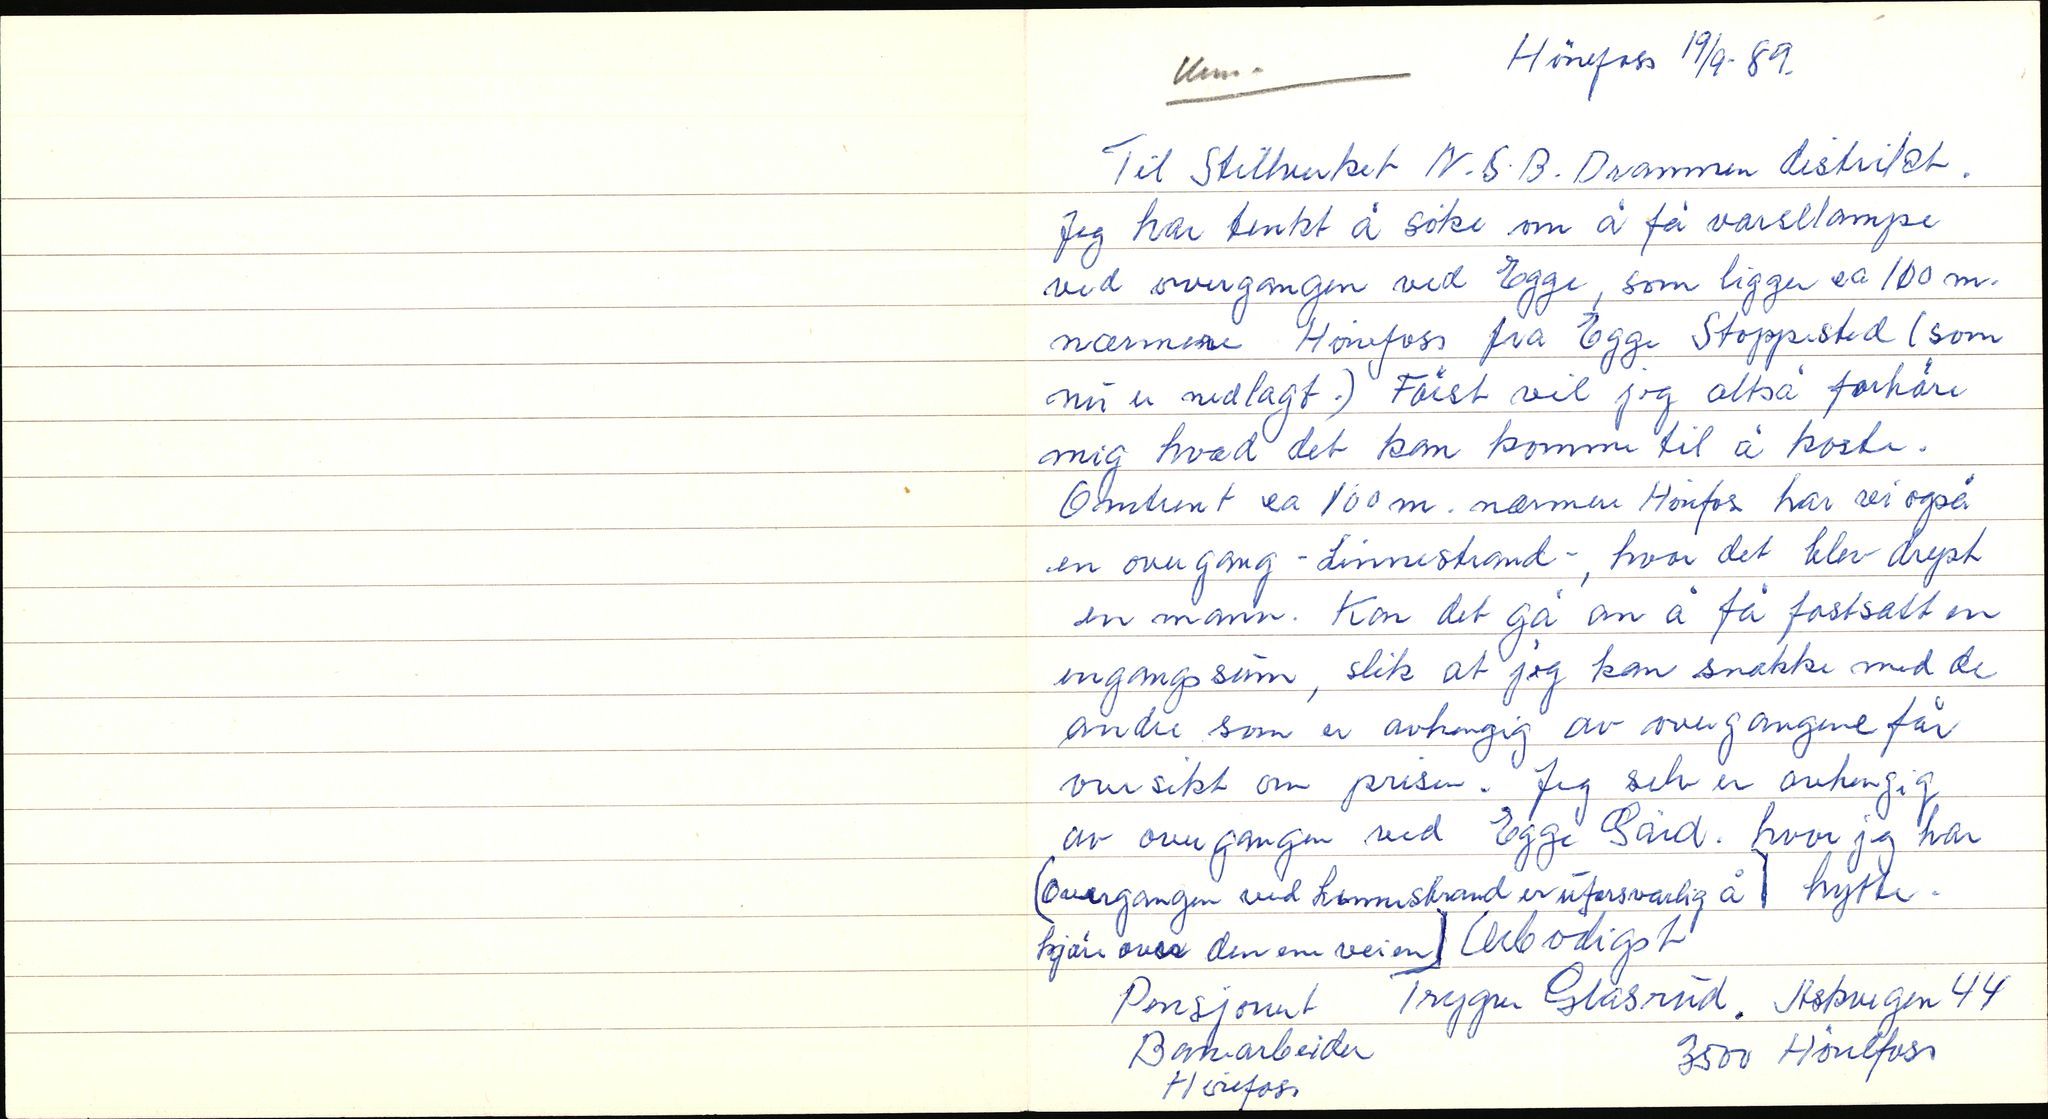 Hönefoss 19/9-89.
Til Stillverket N.S.B. Drammen distrikt.
Jeg har tenkt å söke om å få varsellampe
ved overgangen ved Egge, som ligger ca 100 m.
nærmere Hönefoss fra Egge Stoppested (som
nu er nedlagt.) Först vil jeg altså forhöre
mig hvad det kan komme til å koste.
Omtrent ca 100 m. nærmere Hönefos har vi også
en overgang - Linnestrand -, hvor det blev drept
en mann. Kan det gå an å få fastsatt en
engangssum, slik at jeg kan snakke med de
andre som er avhengig av overgangene får
oversikt om prisen. Jeg selv er avhengig
av overgangen ved Egge Gård. hvor jeg har
(Overgangen ved Linnestrand er uforsvarlig å hytte.
kjöre over den ene veien) Ærbödigst
Pensjonert Trygve Glasrud. Askvegen 44
Banearbeider 3500 Hönefoss
Hönefoss